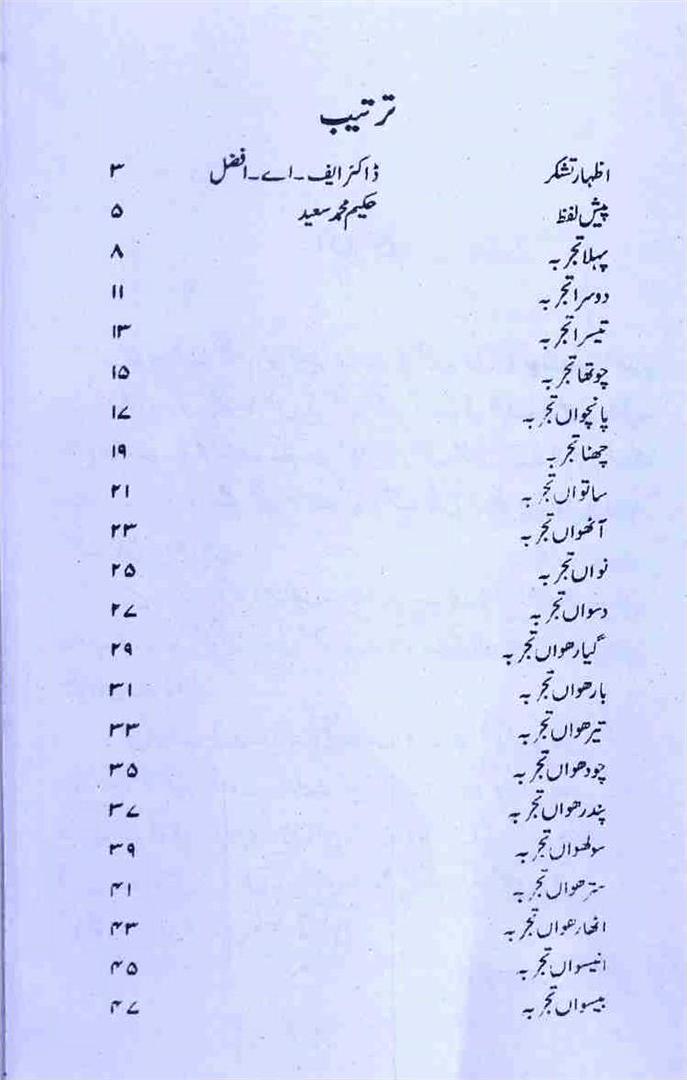 ترتیب
اظہار تشکر ڈاکٹر ایف۔اے۔افضل ۳
پیش لفظ حکیم محمد سعید ۵
پہلا تجربہ ۸
دوسرا تجربہ ۱۱
تیسرا تجربہ ۱۳
چوتھا تجربہ ۱۵
پانچواں تجربہ ۱۷
چھٹا تجربہ ۱۹
ساتواں تجربہ ۲۱
آٹھواں تجربہ ۲۳
نواں تجربہ ۲۵
دسواں تجربہ ۲۷
گیارھواں تجربہ ۲۹
بارھواں تجربہ ۳۱
تیرھواں تجربہ ۳۳
چودھواں تجربہ ۳۵
پندرھواں تجربہ ۳۷
سولھواں تجربہ ۳۹
سترھواں تجربہ ۴۱
اٹھارھواں تجربہ ۴۳
انیسواں تجربہ ۴۵
بیسواں تجربہ ۴۷